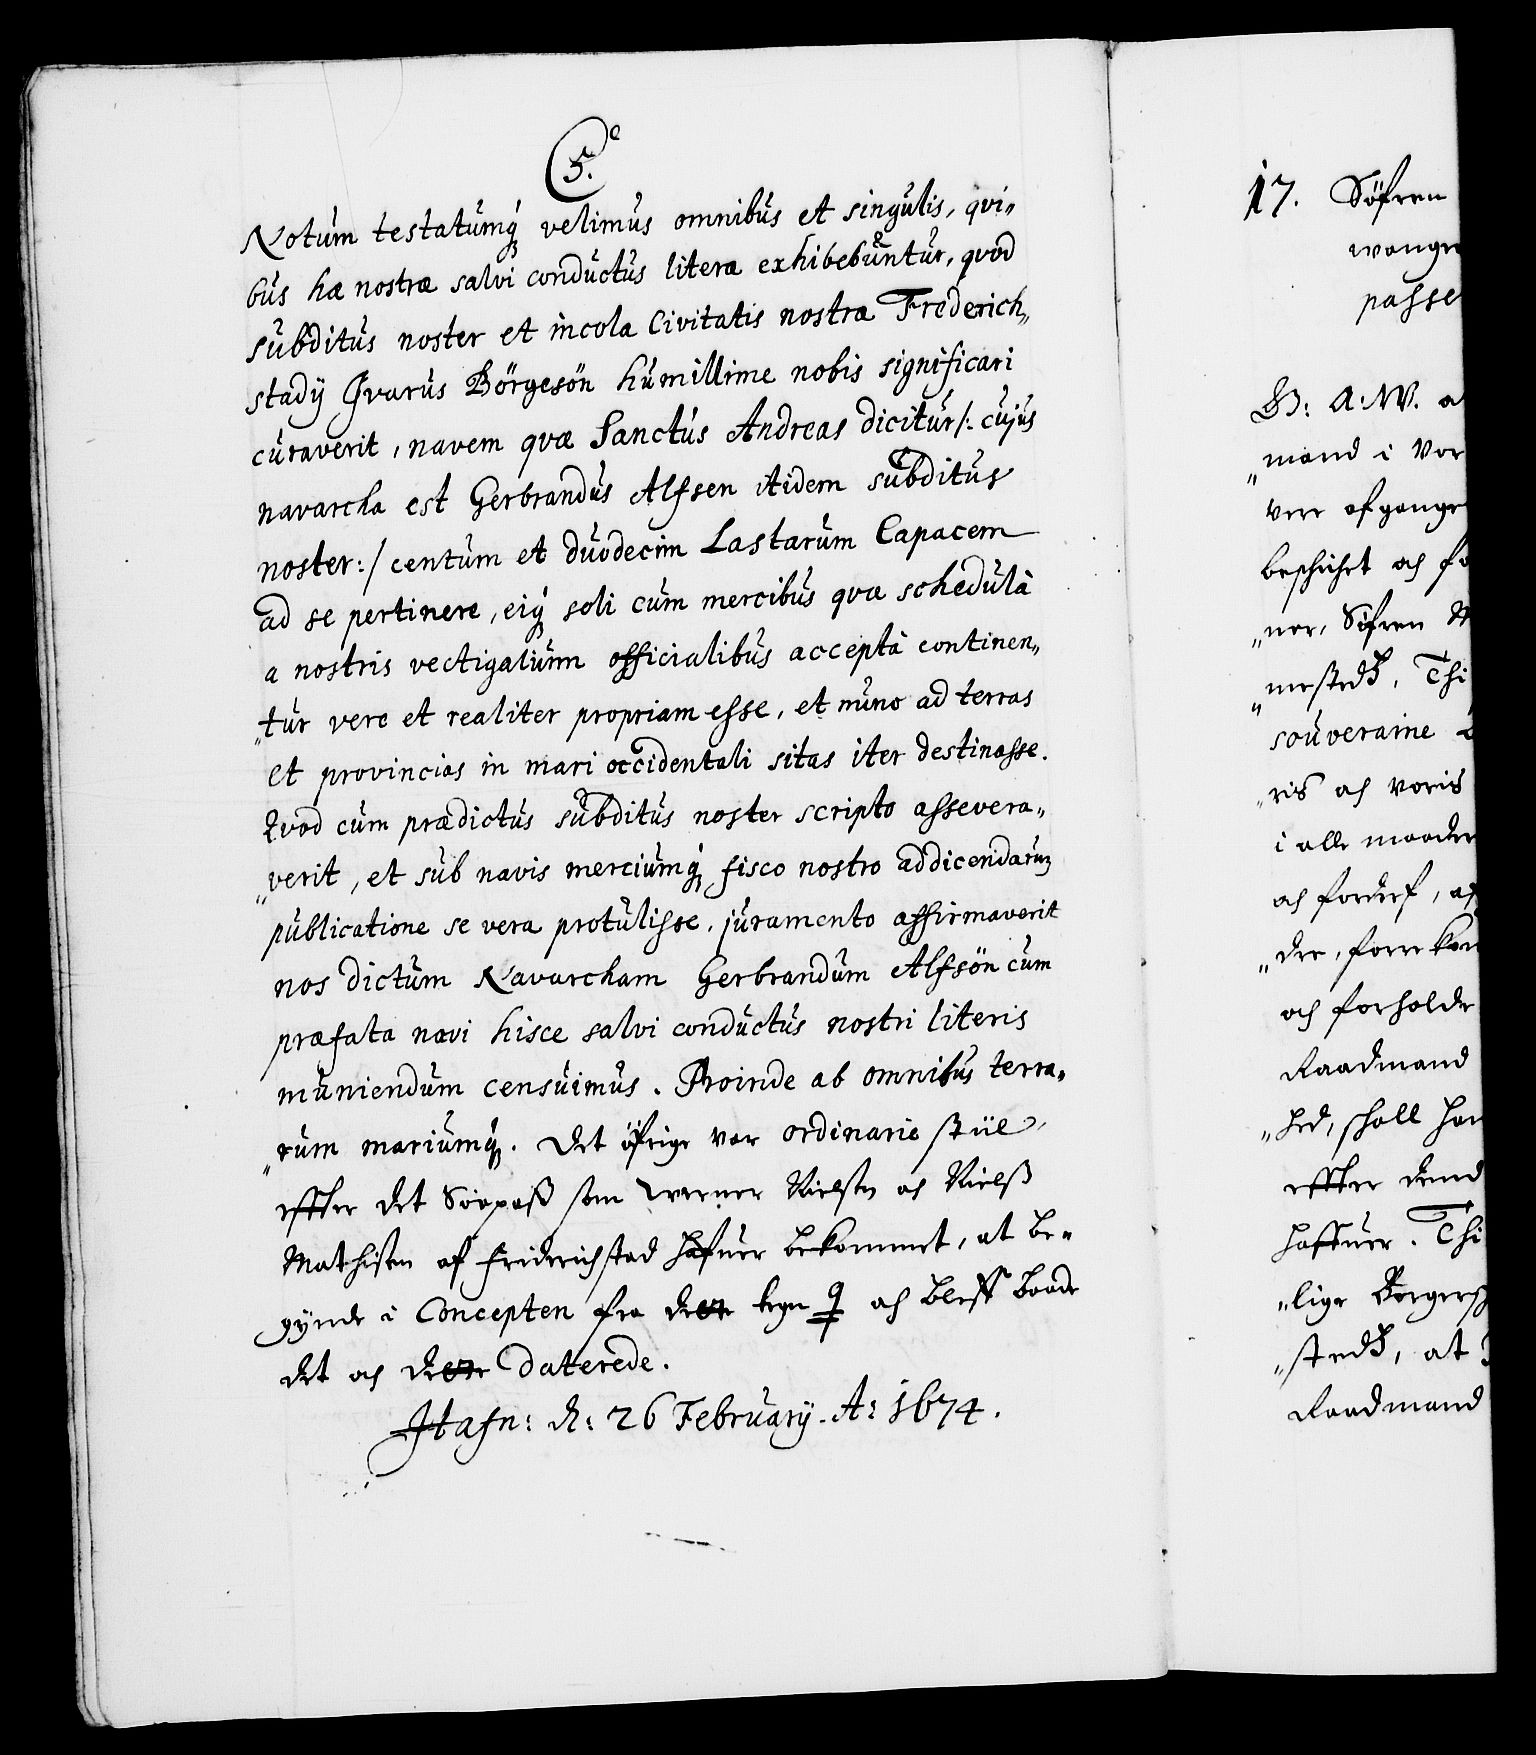 C5.
Notum testatumq; velimus omnibus et singulis, qvi-
bus hæ nostræ salvi conductus literæ exhibebuntur, qvod
subditus noster et incola Civitatis nostræ Frederich-
stadij Ivarus Börgesön humillime nobis significari
curaverit, navem qvæ Sanctus Andreas dicitur /: cujus
navarcha est Gerbrandus Alfsen itidem subditus
noster :/ centum et duodecim Lastarum Capacem
ad se pertinere, eiq; soli cum mercibus qvæ schedulâ
a nostris vectigalium officialibus acceptâ continen-
"tur vere et realiter propriam esse, et nunc ad terras
et provincias in mari occidentali sitas iter destinasse.
Qvod cum prædictus subditus noster scripto assevera-
"verit, et sub navis merciumq; fisco nostro addicendarum
publicatione se vera protulisse, juramento affirmaverit
nos dictum Navarcham Gerbrandum Alfsön cum
præfata navi hisce salvi conductus nostri literis
muniendum censuimus. Proinde ab omnibus terra-
"rum mariumq;. Det öfrige var ordinarie stiil
effter det Söepass som Werner Nielsen och Nielss
Mathisen af Friderichstad hafuer bekommet, at be-
gynde i Concepten fra dette tegn och bleff baade
det och dette daterede.
Hafn: d: 26 February. A: 1674.
17. Söfren
passe
G: A: W. a
"mand i Vor
beschichet och fo
"ner, Söfren
souveraine
"ris och voris
i alle maader
och forderf, a
och forholde
Raadmand
"hed, schall han
effter dend
haffuer. Thi
"lige Borgersch
at
Raadmand